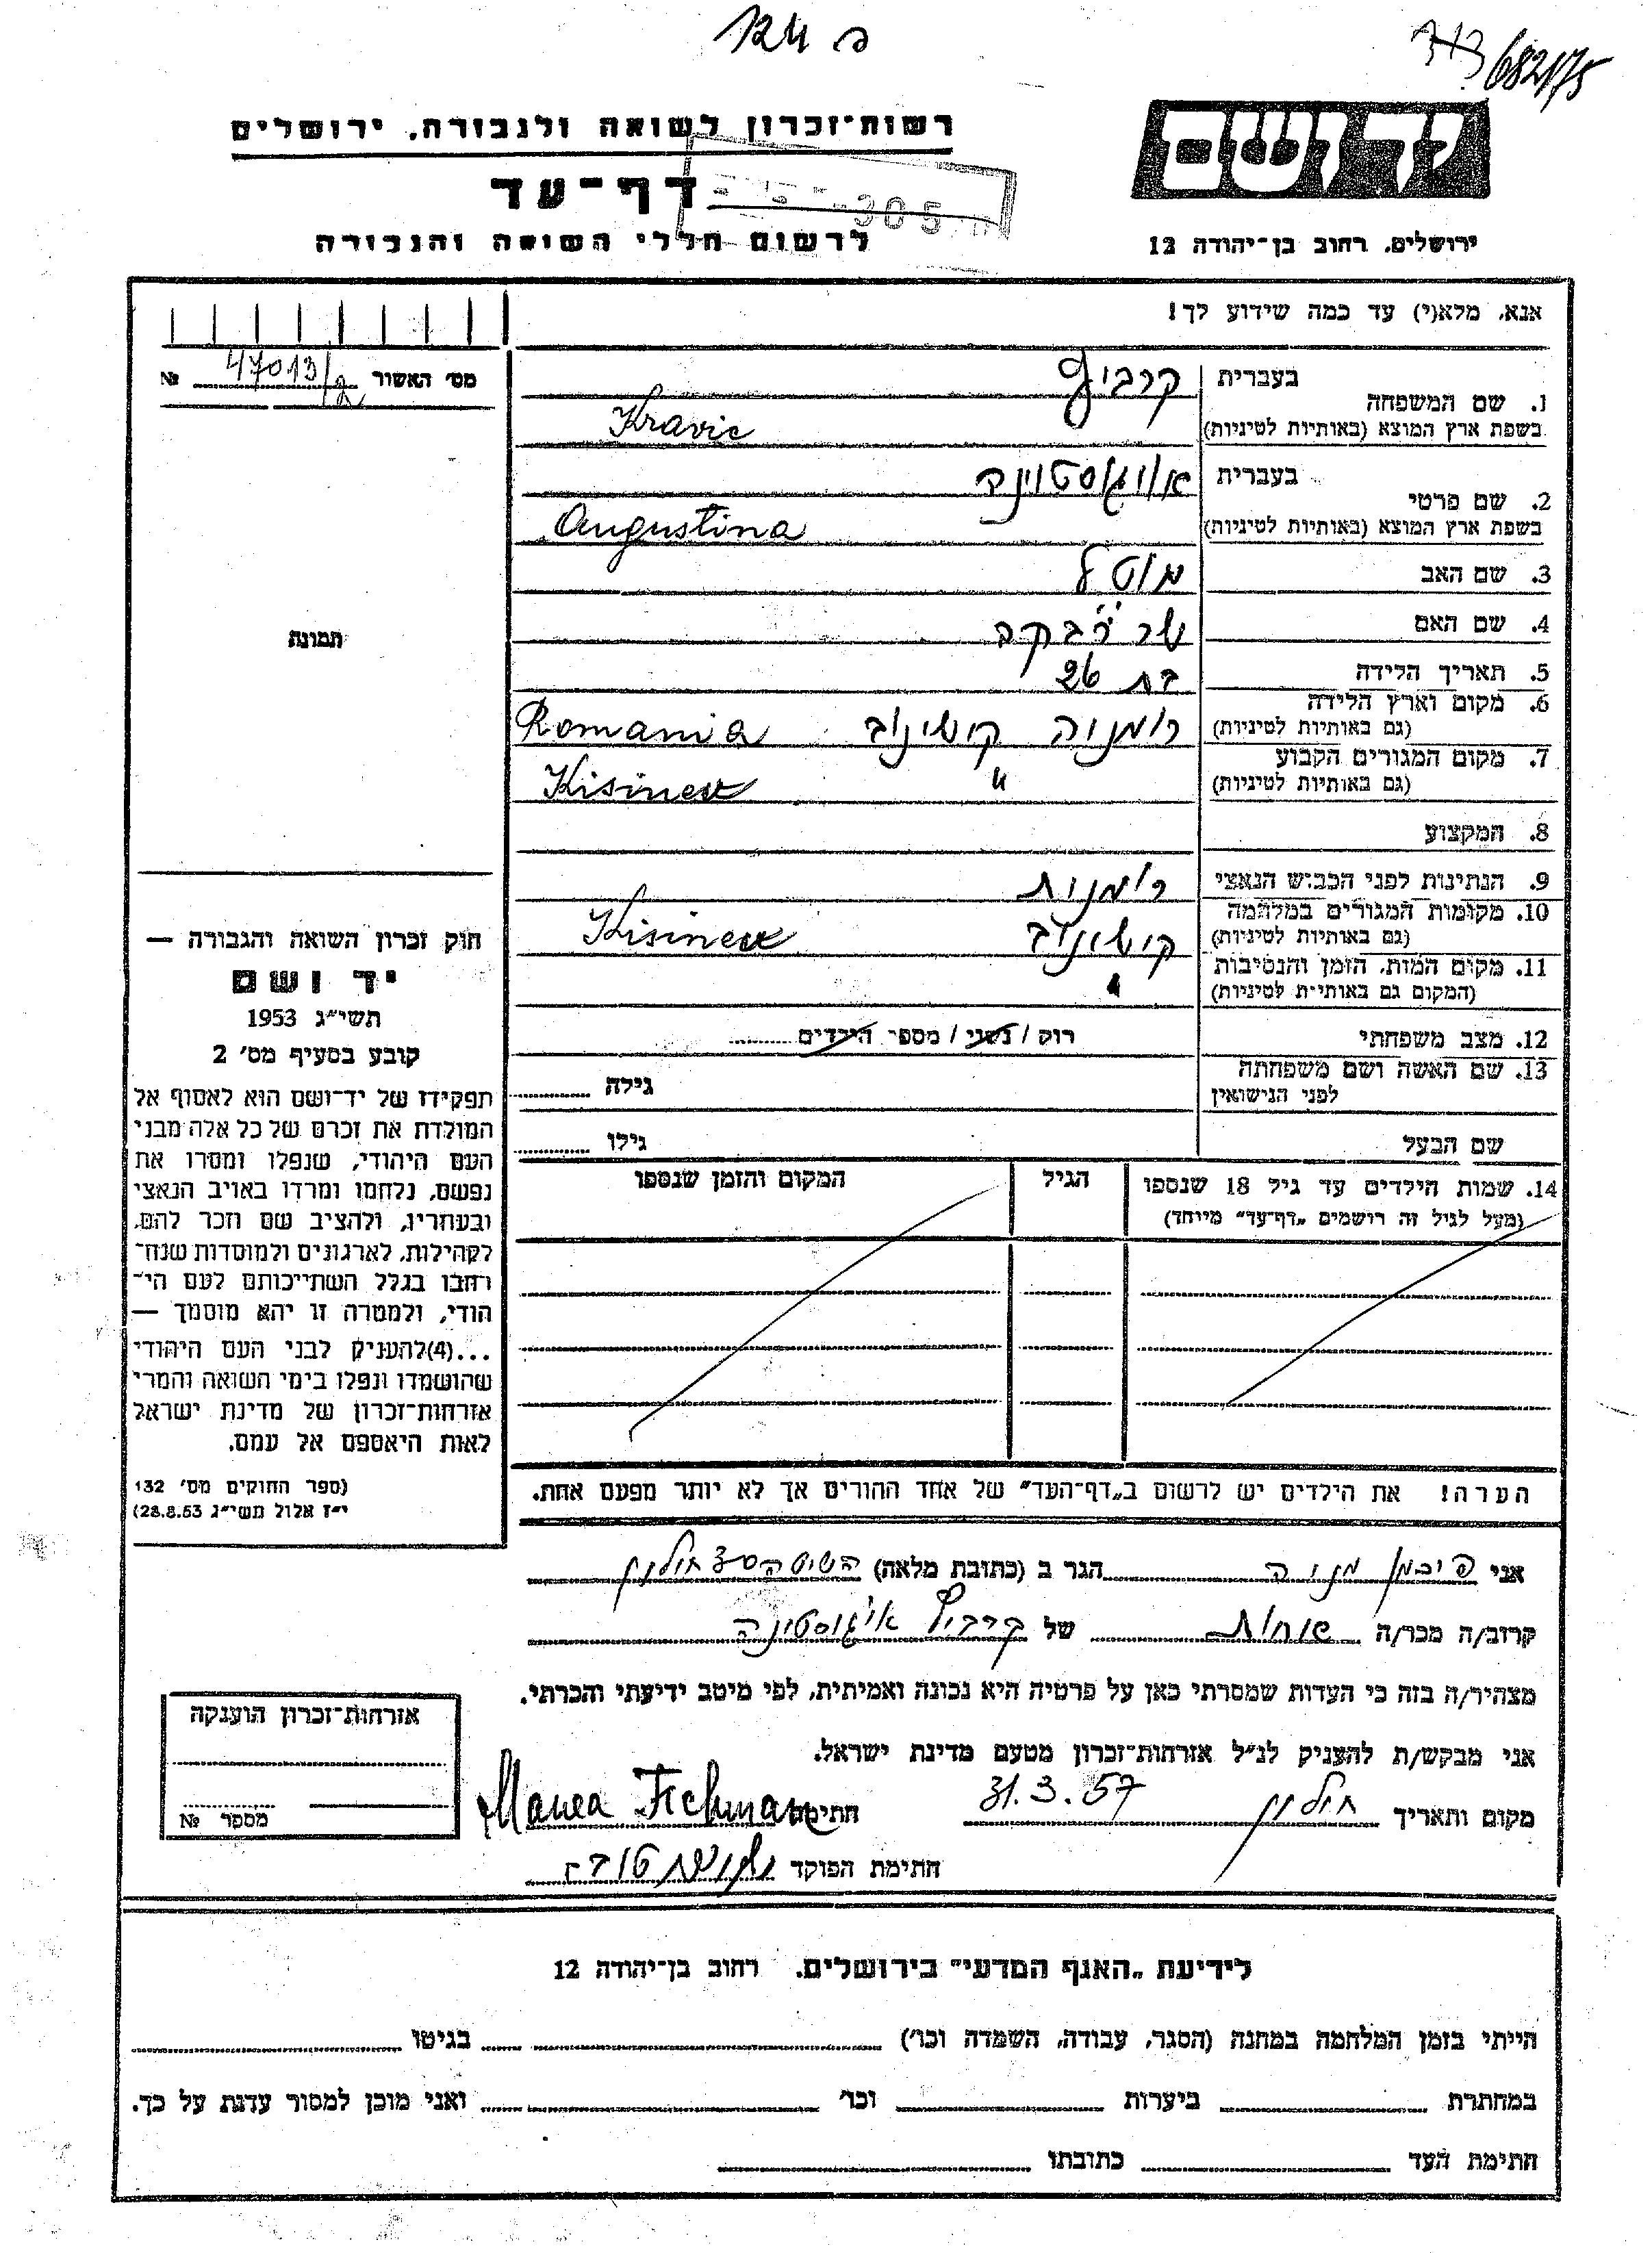 124 פ
682/75
רשות־זכרון לשואה ולגבורה, ירושלים
יד ושם
דף־עד
לרשום חללי השואה והגבורה
ירושלים, רחוב בן־יהודה 12
אנא, מלא(י) עד כמה שידוע לך!
מס׳ האשור 47013/ № 
1. שם המשפחה
בעברית קרביץ
בשפת ארץ המוצא (באותיות לטיניות) Kravic
2. שם פרטי
בעברית אווגוסטוינה
בשפת ארץ המוצא (באותיות לטיניות) Augustina
3. שם האב מוטל
4. שם האם רבקה
5. תאריך הלידה בת 26
6. מקום וארץ הלידה (גם באותיות לטיניות) רומניה קישינוב Romania
7. מקום המגורים הקבוע (גם באותיות לטיניות) " Kisinev
8. המקצוע
9. הנתינות לפני הכבוש הנאצי רומנית
10. מקומות המגורים במלחמה (גם באותיות לטיניות) קישינוב Kisinev
11. מקום המות, הזמן והנסיבות (המקום גם באותיות לטיניות) "
12. מצב משפחתי רוק / נשוי / מספר הילדים
13. שם האשה ושם משפחתה לפני הנישואין גילה
שם הבעל גילו
14. שמות הילדים עד גיל 18 שנספו
(מעל לגיל זה רושמים „דף־עד״ מיוחד)
הגיל
המקום והזמן שנספו
תמונה
חוק זכרון השואה והגבורה —
יד ושם
תשי״ג 1953
קובע בסעיף מס׳ 2
תפקידו של יד־ושם הוא לאסוף אל
המולדת את זכרם של כל אלה מבני
העם היהודי, שנפלו ומסרו את
נפשם, נלחמו ומרדו באויב הנאצי
ובעוזריו, ולהציב שם וזכר להם,
לקהילות, לארגונים ולמוסדות שנח־
רחבו בגלל השתייכותם לעם הי־
הודי, ולמטרה זו יהא מוסמך —
...(4)להעניק לבני העם היהודי
שהושמדו ונפלו בימי השואה והמרי
אזרחות־זכרון של מדינת ישראל
לאות היאספם אל עמם.
(ספר החוקים מס׳ 132
י״ז אלול תשי״ג 28.8.53)
הערה! את הילדים יש לרשום ב„דף־העד״ של אחד ההורים אך לא יותר מפעם אחת.
אני פיכמן מניה הגר ב (כתובת מלאה) חולון
קרוב/ה מכר/ה אחות של קרביץ אוגוסטינה
מצהיר/ה בזה כי העדות שמסרתי כאן על פרטיה היא נכונה ואמיתית, לפי מיטב ידיעתי והכרתי.
אני מבקש/ת להעניק לנ״ל אזרחות־זכרון מטעם מדינת ישראל.
מקום ותאריך חולון 31.3.57 חתימה Manea Fichman
חתימת הפוקד
אזרחות־זכרון הוענקה
מספר №
לידיעת „האגף המדעי״ בירושלים, רחוב בן־יהודה 12
הייתי בזמן המלחמה במחנה (הסגר, עבודה, השמדה וכו׳) בגיטו
במחתרת ביערות וכו׳ ואני מוכן למסור עדות על כך.
חתימת העד כתובתו